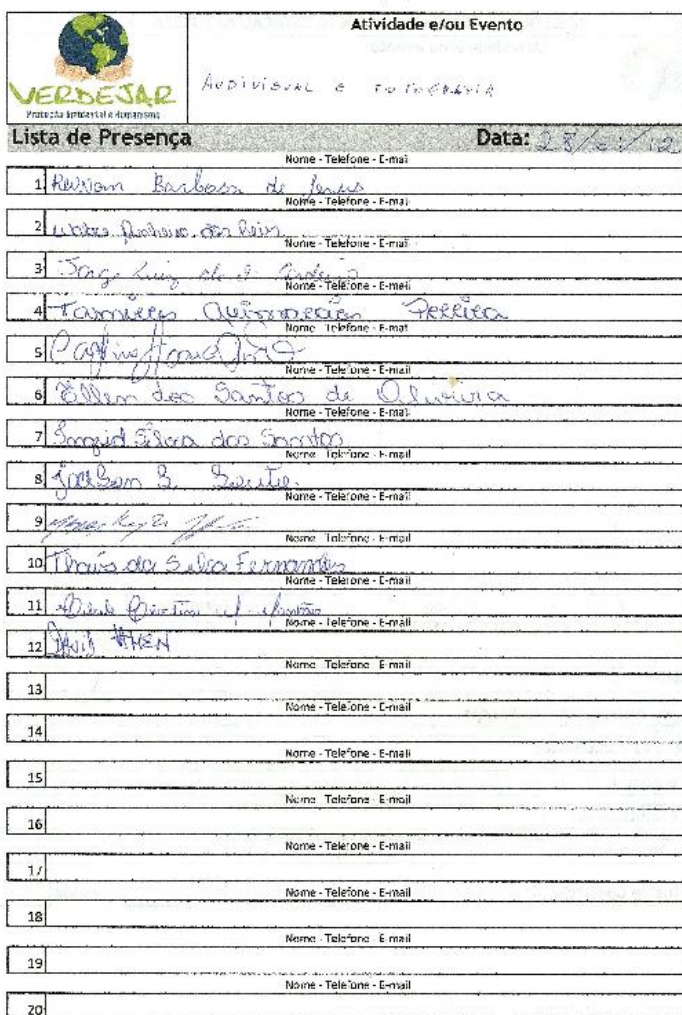 Atividade e/ou Evento
VERDEJAR
Proteção Ambiental e Humanismo
AUDIVISUAL E FOTOGRAFIA
Lista de Presença Data: 28/01/12
Nome - Telefone - E-mail
1 Barbosa de Jesus
Nome - Telefone - E-mail
2 dos Reis
Nome - Telefone - E-mail
3 Jorge Luiz
Nome - Telefone - E-mail
4 Tamires Guimarães Ferreira
Nome - Telefone - E-mail
5
Nome - Telefone - E-mail
6 Ellen dos Santos de Oliveira
Nome - Telefone - E-mail
7 Ingrid Silva dos Santos
Nome - Telefone - E-mail
8 Jackson S.
Nome - Telefone - E-mail
9
Nome - Telefone - E-mail
10 Thais da Silva Fernandes
Nome - Telefone - E-mail
11
Nome - Telefone - E-mail
12 DAVID
Nome - Telefone - E-mail
13
Nome - Telefone - E-mail
14
Nome - Telefone - E-mail
15
Nome - Telefone - E-mail
16
Nome - Telefone - E-mail
17
Nome - Telefone - E-mail
18
Nome - Telefone - E-mail
19
Nome - Telefone - E-mail
20